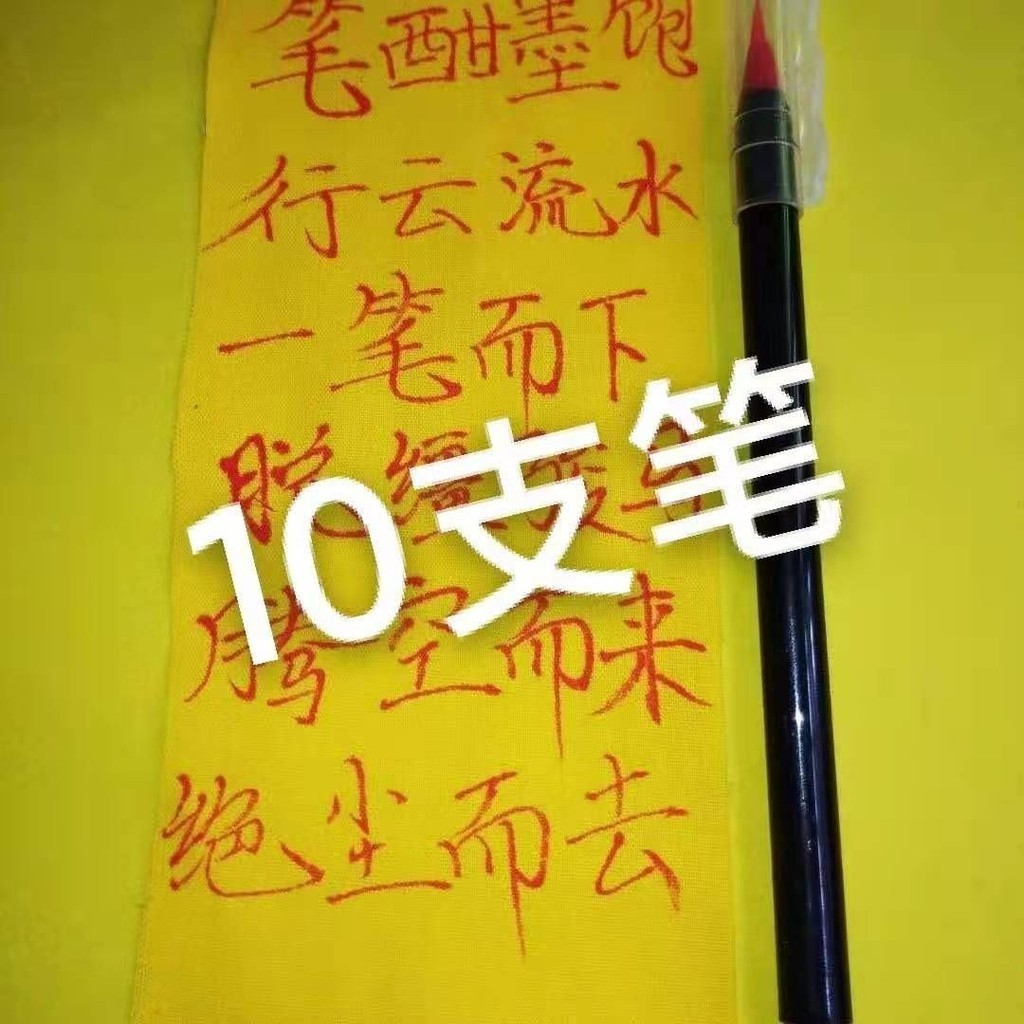 笔酣墨饱
行云流水
一笔而下
脱缰骏马
腾空而来
绝尘而去
10支笔